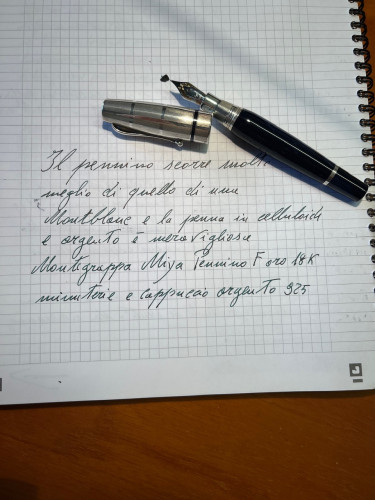 Il pennino scorre molto
meglio di quello di una
Montblanc e la penna in celluloide
e argento è meravigliosa
Montegrappa Miya Pennino F oro 18K
minuterie e cappuccio argento 925